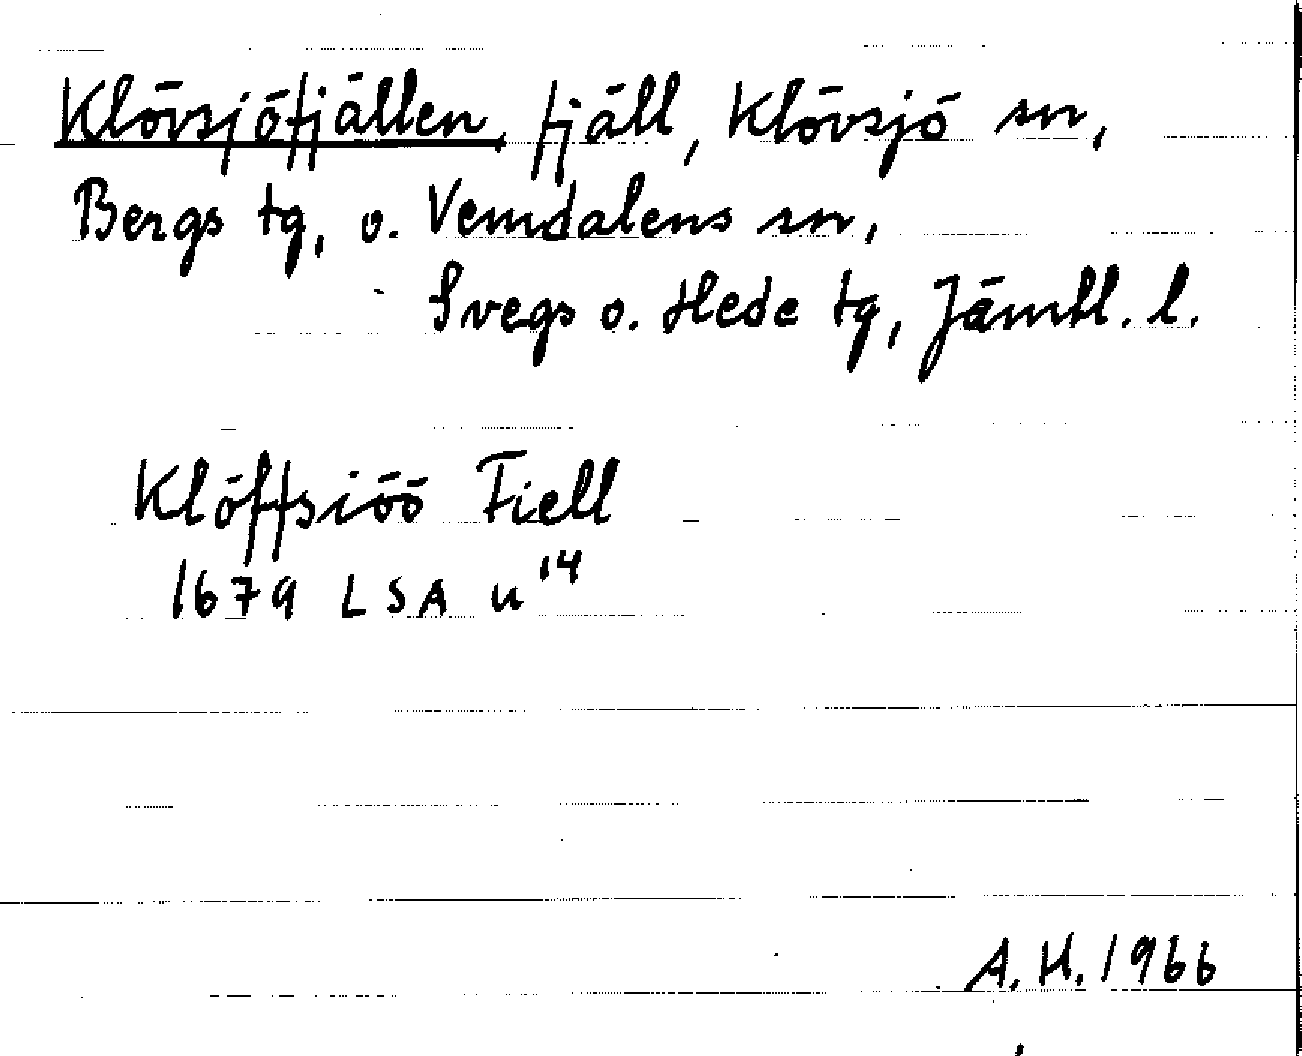 Klövsjöfjällen, fjäll, Klövsjö sn,
Bergs tg, o. Vemdalens sn,
Svegs o. Hede tg, Jämtl. l.
Klöffsiöö Fiell
1679 LSA u 14
A. H. 1966